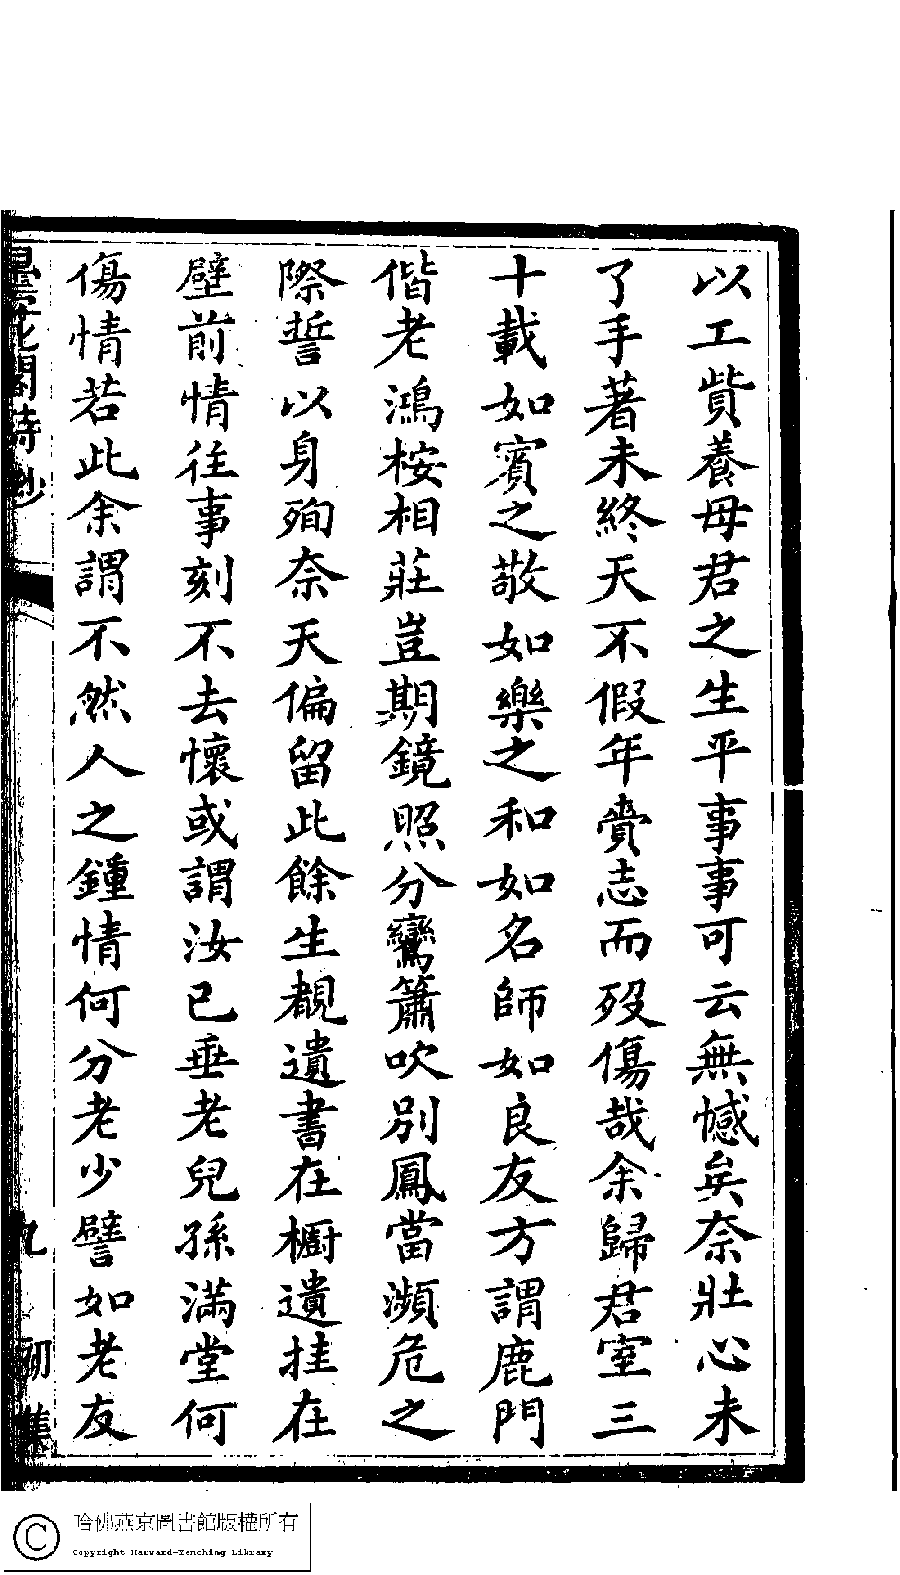 以工貲養母君之生平事事可云無憾矣奈壯心未
了手著未終天不假年賫志而歿傷哉余歸君室三
十載如賓之敬如樂之和如名師如良友方謂鹿門
偕老鴻桉相莊豈期鏡照分鸞簫吹別鳳當瀕危之
際誓以身殉奈天偏留此餘生覩遺書在櫥遺挂在
壁前情往事刻不去懷或謂汝已垂老兒孫滿堂何
傷情若此余謂不然人之鍾情何分老少譬如老友
曇花閣詩鈔
九
初集
哈佛燕京圖書館版權所有
Copyright Harvard-Yenching Library